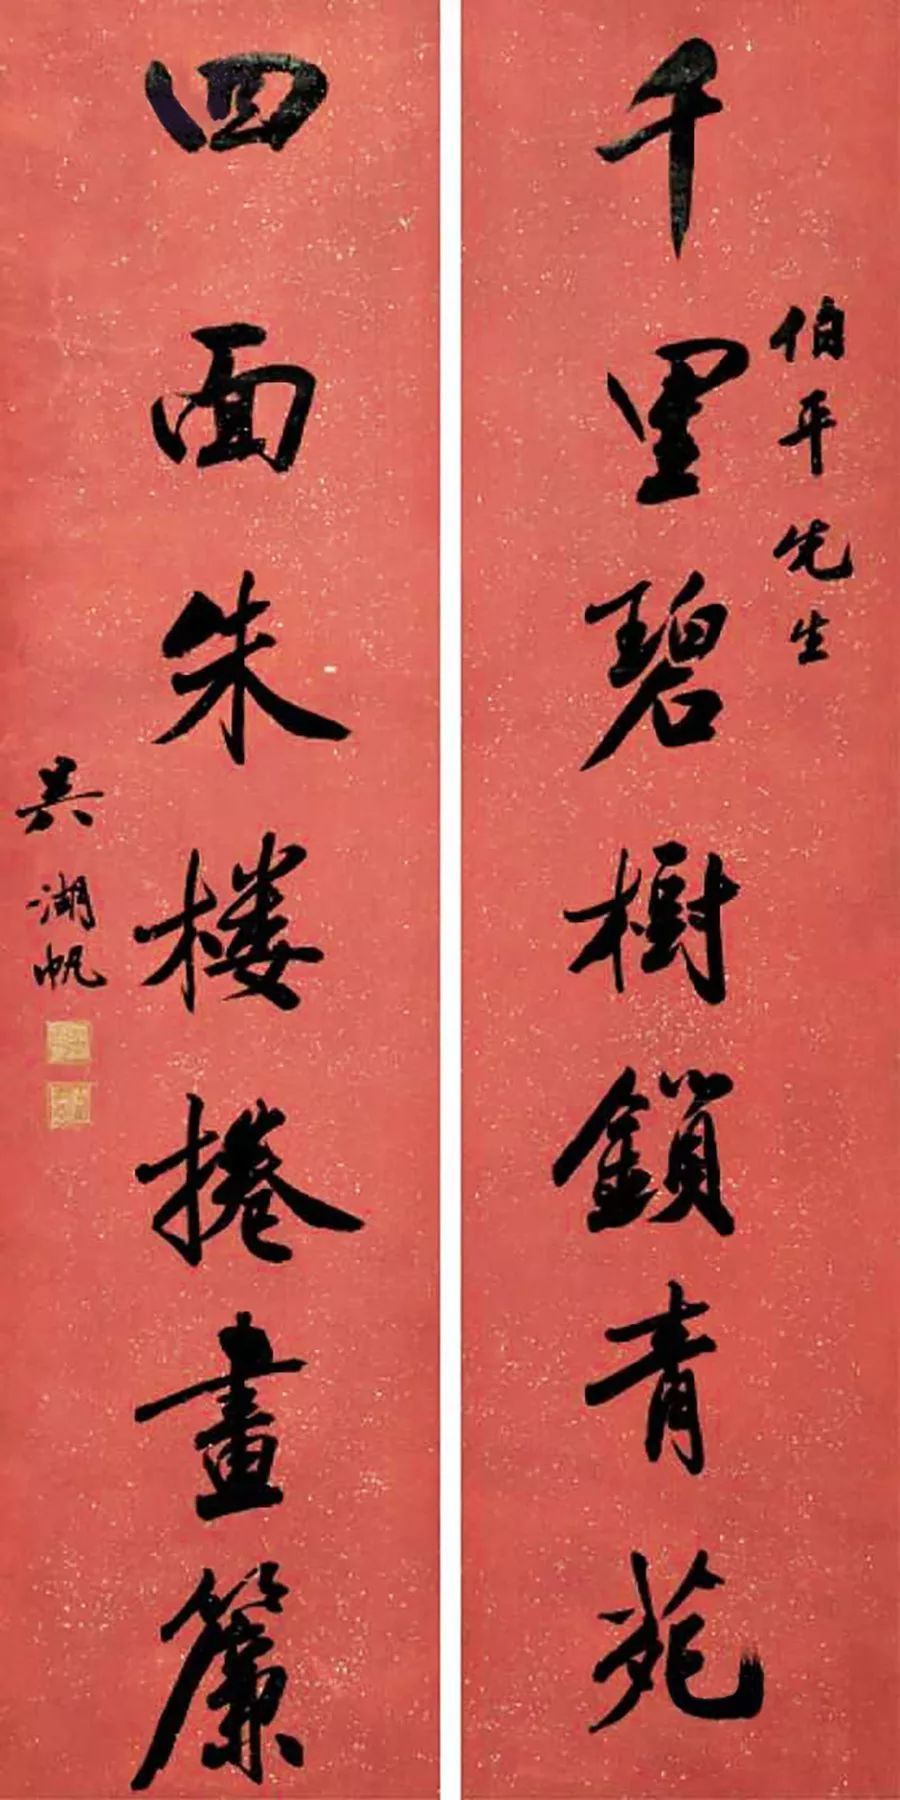 伯平先生
千里碧樹鎖青苑
四面朱楼捲畫簾
吳湖帆